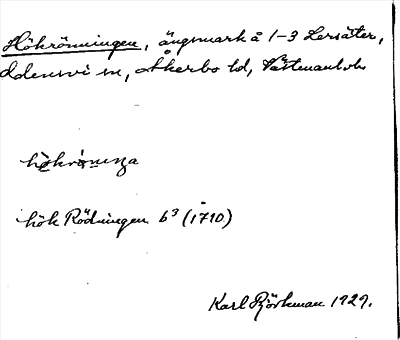 Hökrönningen, ängsmark å 1-3 Lersäter,
Odensvi sn, Åkerbo hd, Västmanl. l.
hök Rödningen b³ (1710)
Karl Björkman 1929.